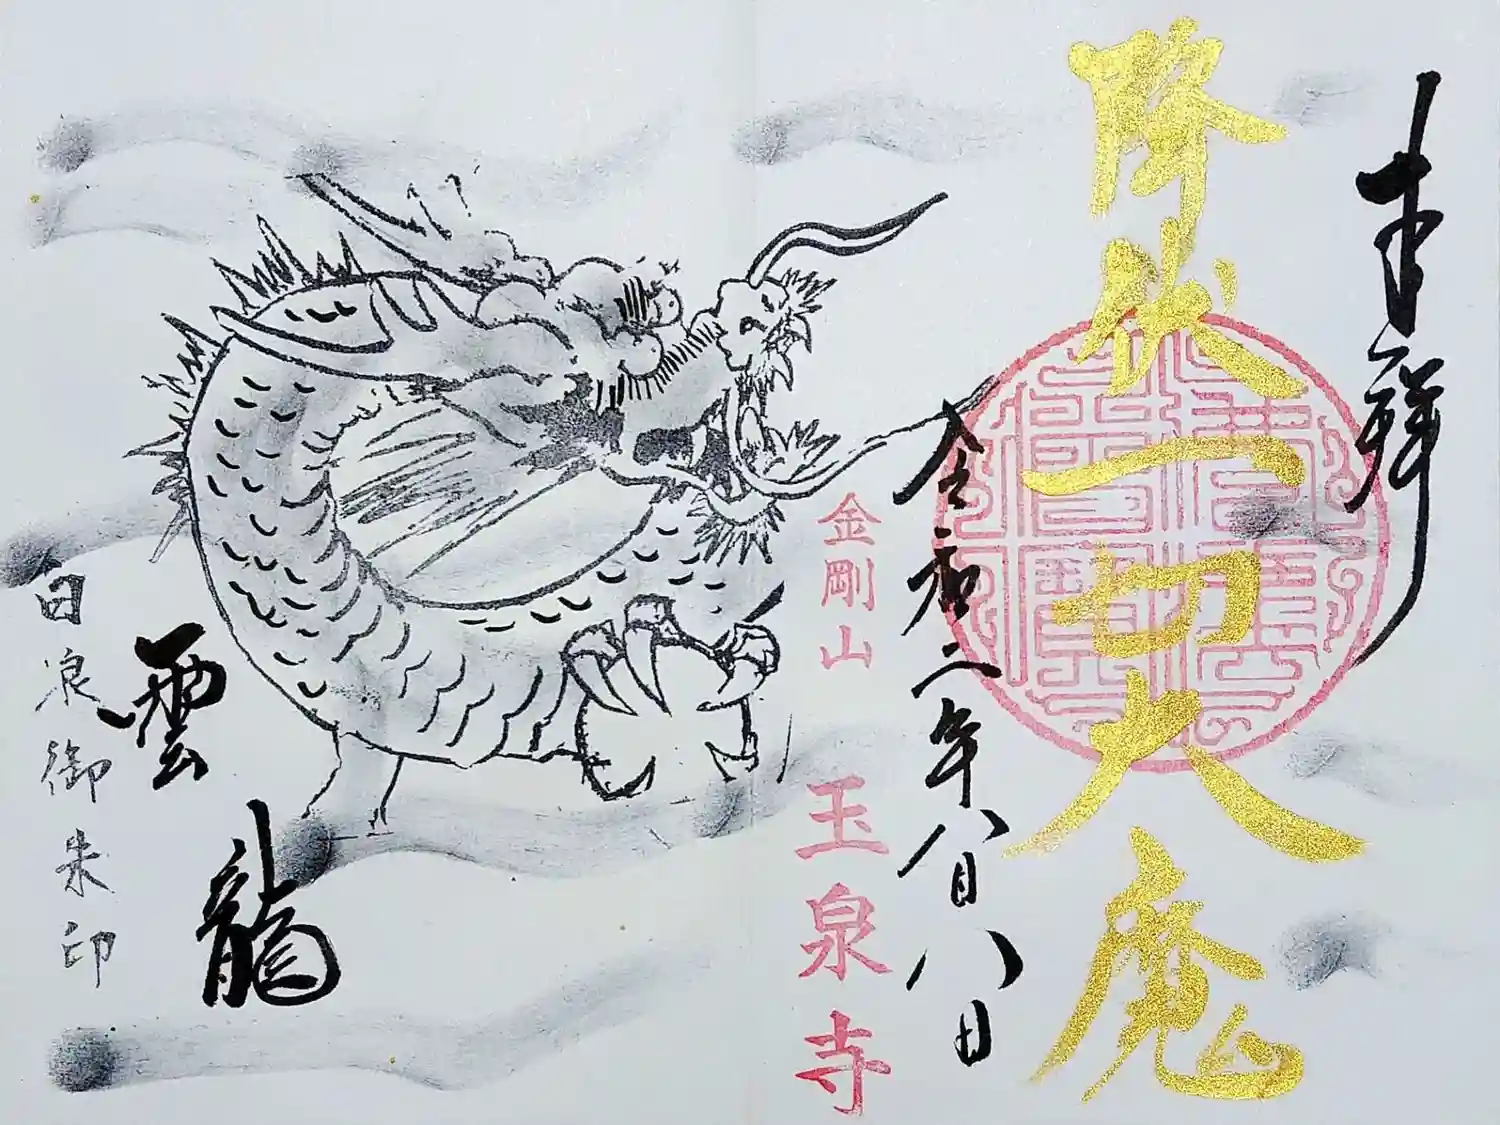 奉拝
降伏一切大魔
令和二年八月八日
金剛山
玉泉寺
雲龍
御朱印